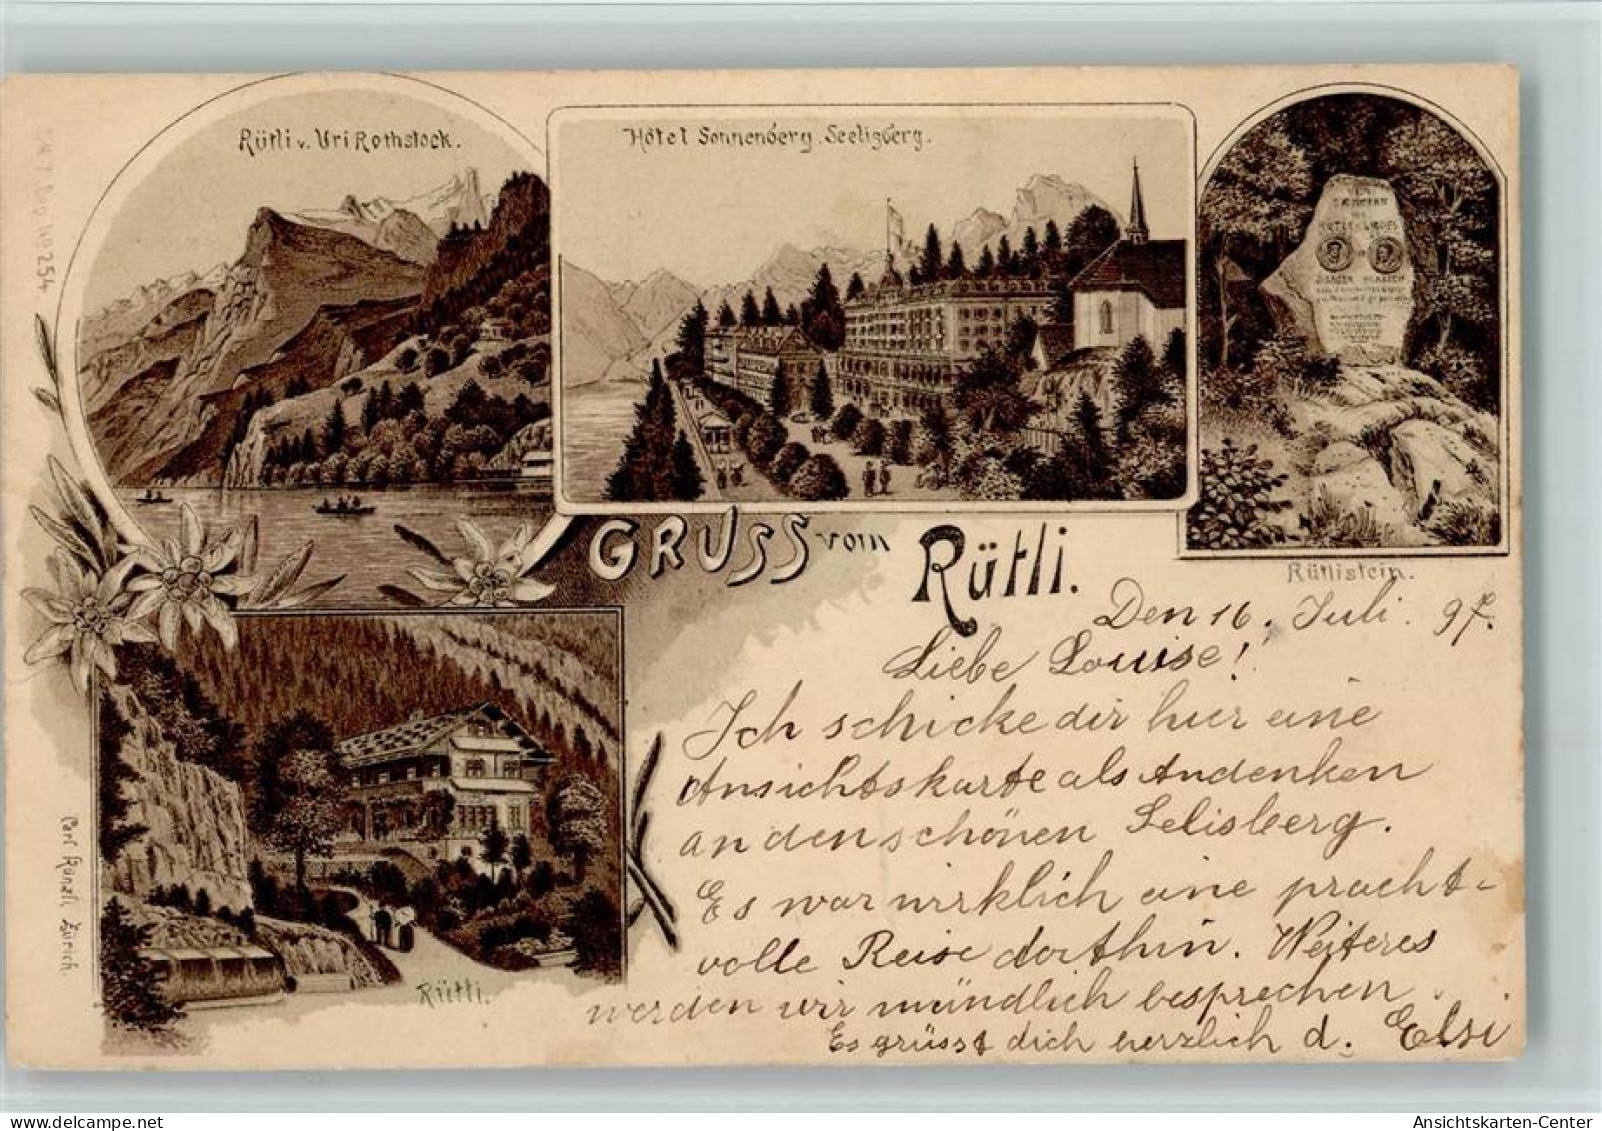 Rütli v. Uri Rothstock.
Hôtel Sonnenberg. Seelisberg.
GRUSS vom Rütli.
Rütlistein.
Den 16. Juli. 97.
Liebe Louise!
Ich schicke dir hier eine
Ansichtskarte als Andenken
an den schönen Selisberg.
Es war wirklich eine pracht-
volle Reise dorthin. Weiteres
werden wir mündlich besprechen.
Es grüsst dich herzlich d. Elsi
Rütli.
Carl Künzli, Zürich.
No 254.
Ansichtskarten-Center